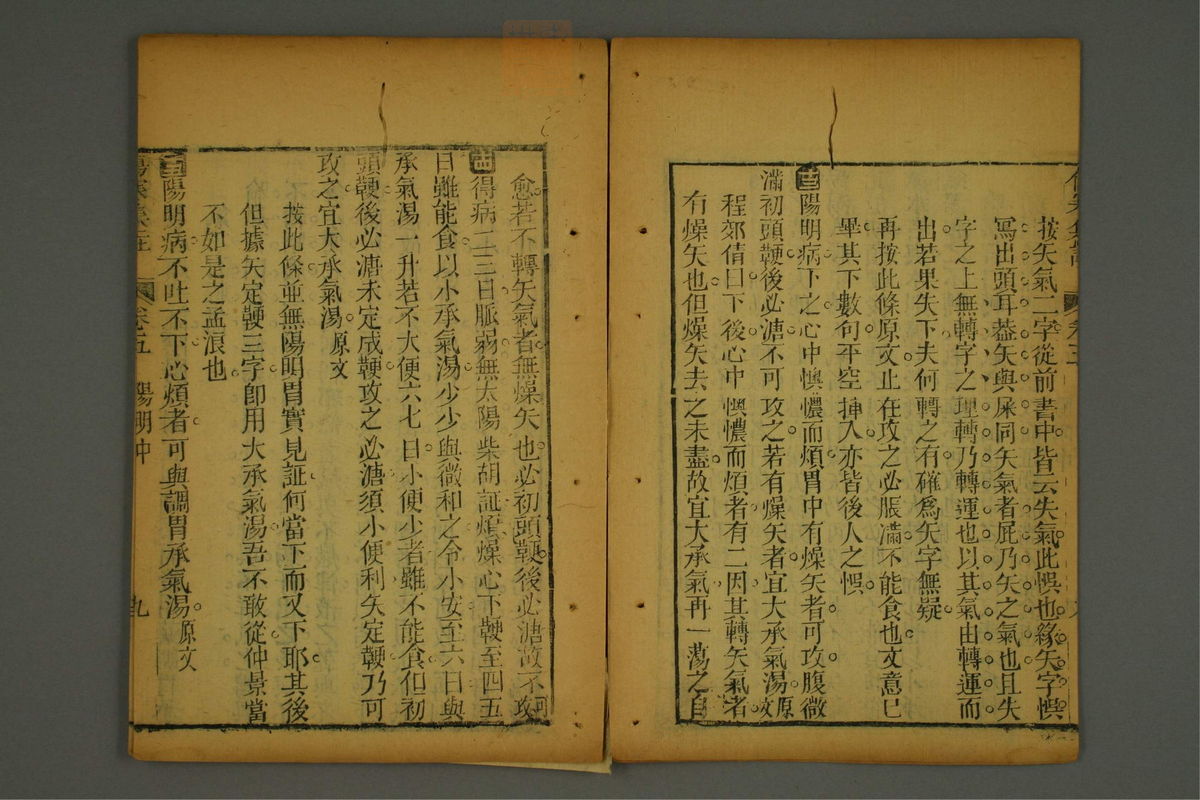 按矢氣二字從前書中皆云失氣此悞也緣矢字悞
冩出頭耳葢矢與屎同矢氣者屁乃矢之氣也且失
字之上無轉字之理轉乃轉運也以其氣由轉運而
出若果失下夫何轉之有確爲矢字無疑
再按此條原文止在攻之必脹滿不能食也文意已
畢其下數句平空揷入亦皆後人之悞
陽明病下之心中懊憹而煩胃中有燥矢者可攻腹微
滿初頭鞕後必溏不可攻之若有燥矢者宜大承氣湯原文
程郊倩曰下後心中懊憹而煩者有二因其轉矢氣者
有燥矢也但燥矢去之未盡故宜大承氣再一蕩之自
愈若不轉矢氣者無燥矢也必初頭鞕後必溏故不可攻
得病二三日脈弱無太陽柴胡証煩燥心下鞕至四五
日雖能食以小承氣湯少少與微和之令小安至六日與
承氣湯一升若不大便六七日小便少者雖不能食但初
頭鞕後必溏未定成鞕攻之必溏須小便利矢定鞕乃可
攻之宜大承氣湯原文
按此條並無陽明胃實見証何當下而又下耶其後
但據矢定鞕三字卽用大承氣湯吾不敢從仲景當
不如是之孟浪也
陽明病不吐不下心煩者可與調胃承氣湯原文
卷五 陽明中 九